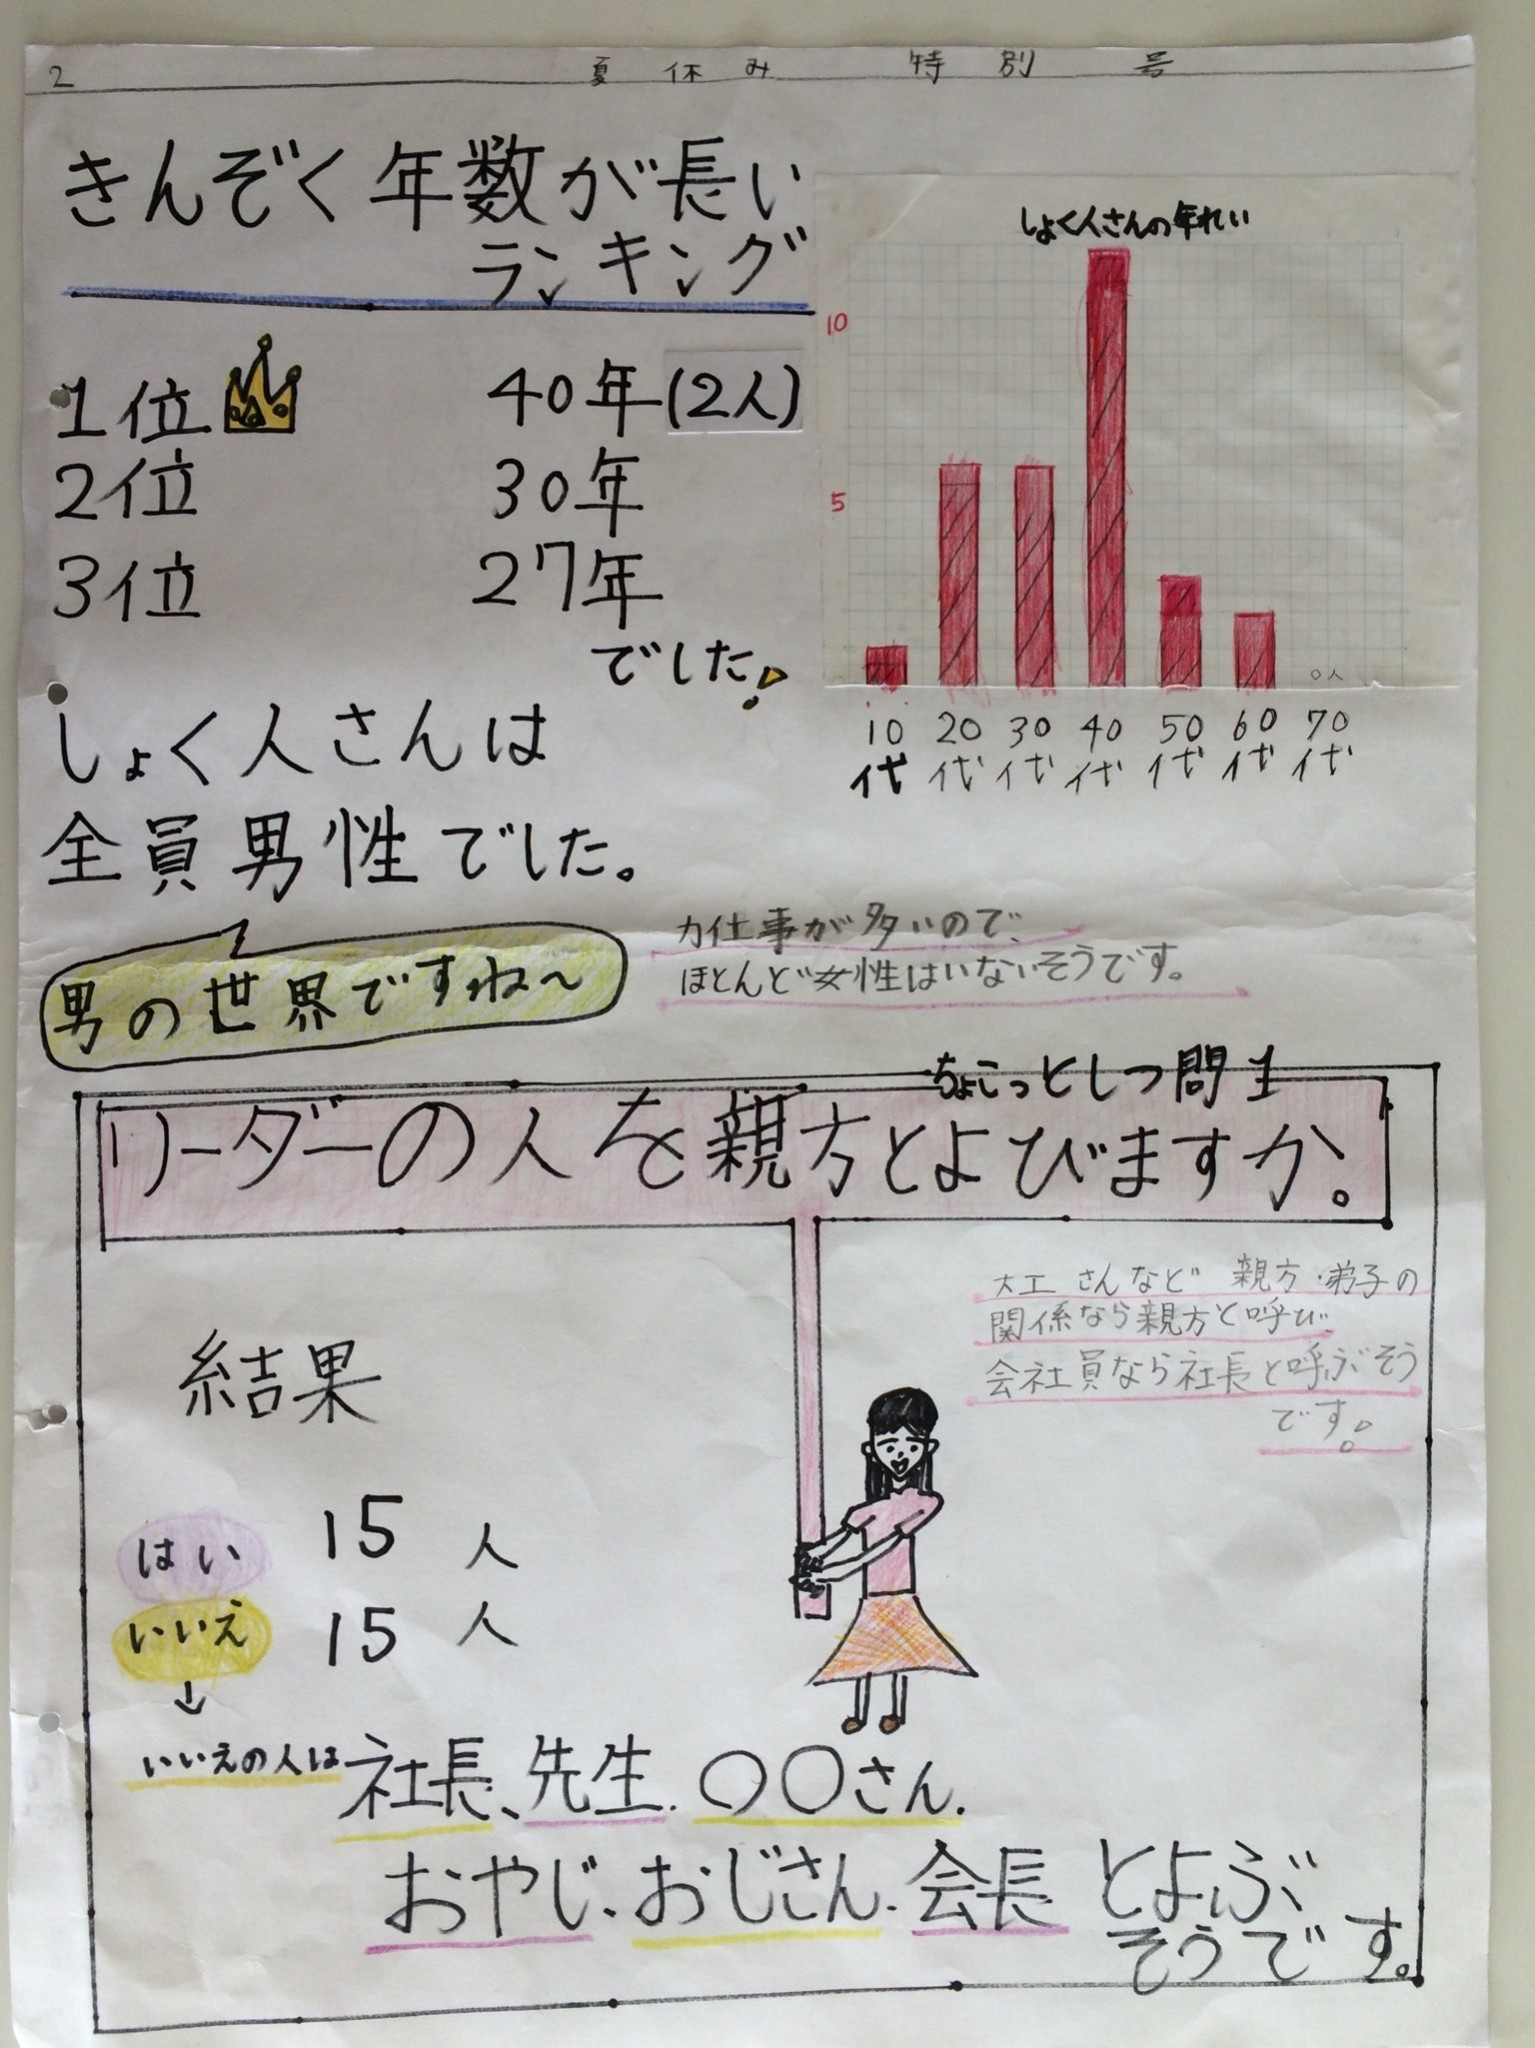 2 夏休み 特別号
きんぞく年数が長い
ランキング
1位 40年(2人)
2位 30年
3位 27年
でした!
しょく人さんの年れい
10
5
0人
10 20 30 40 50 60 70
代 代 代 代 代 代 代
しょく人さんは
全員男性でした。
男の世界ですね〜
力仕事が多いので、
ほとんど女性はいないそうです。
ちょこっとしつ問1
リーダーの人を親方とよびますか。
大工さんなど 親方・弟子の
関係なら親方と呼び、
会社員なら社長と呼ぶそう
です!
結果
はい 15人
いいえ 15人
↓
いいえの人は社長、先生、〇〇さん、
おやじ、おじさん、会長とよぶ
そうです。